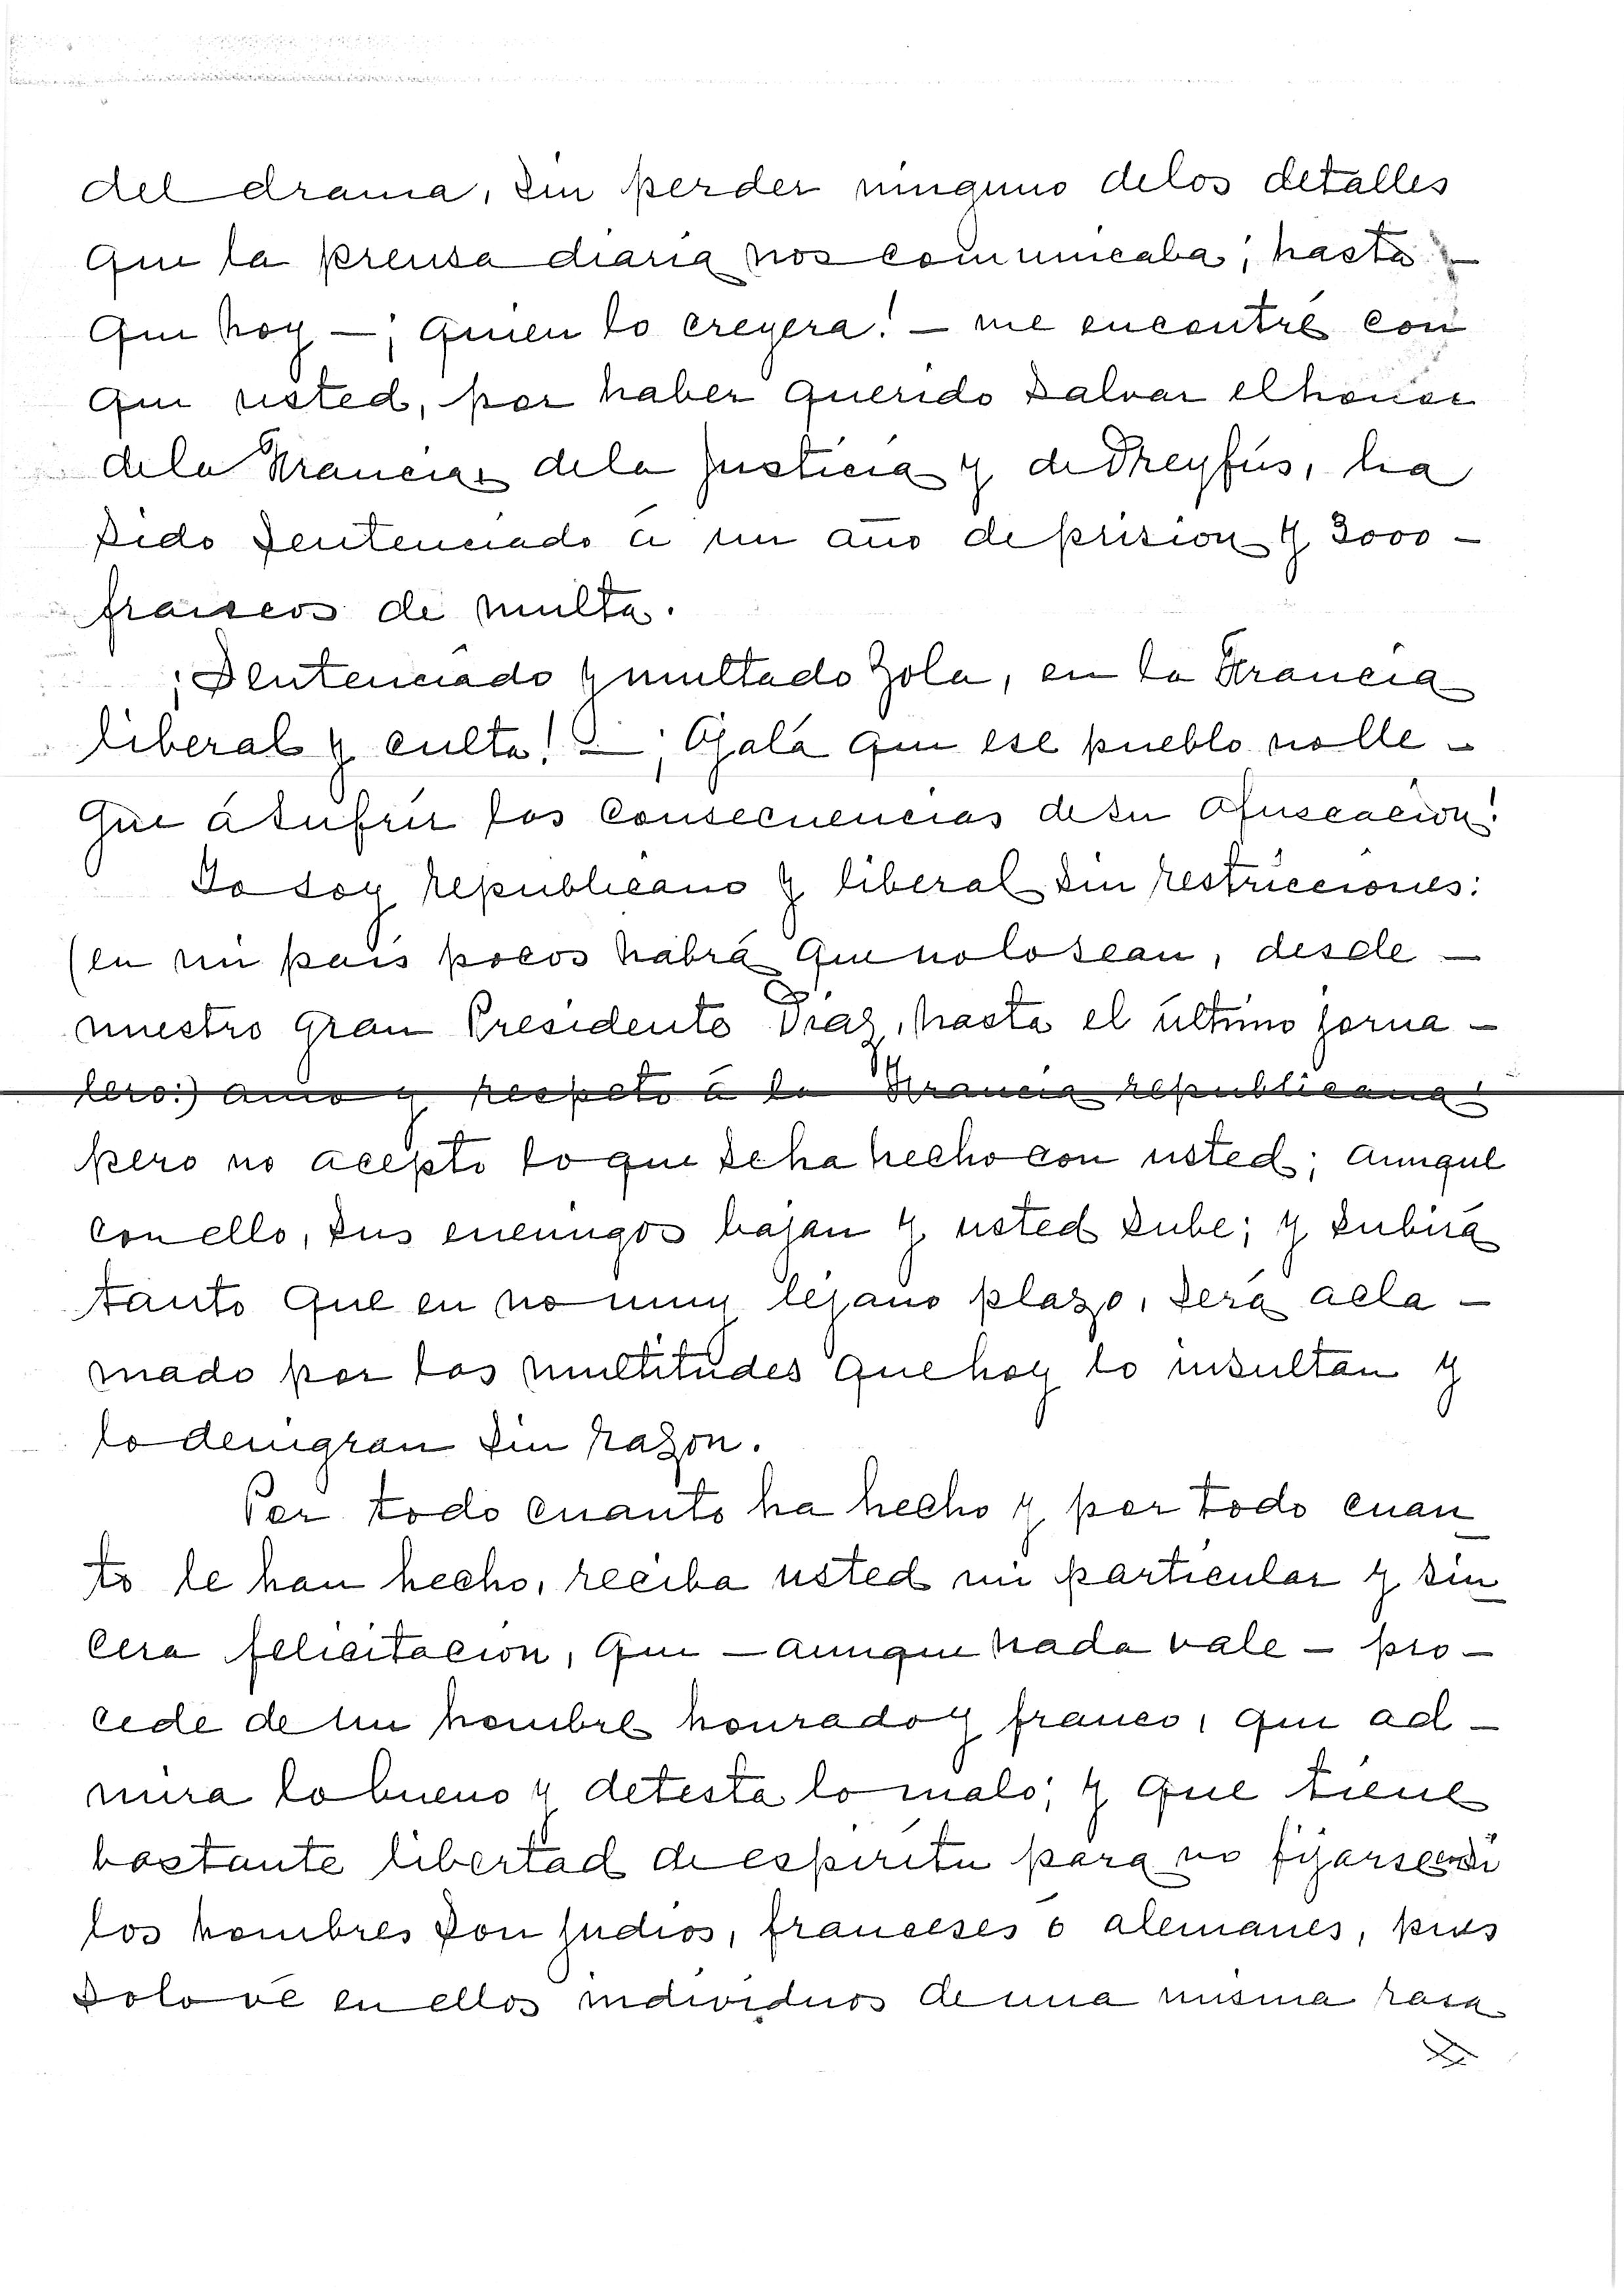 del drama, sin perder ninguno delos detalles
que la prensa diaria nos comunicaba; hasta -
que hoy — ¡quien lo creyera! — me encontré con
que usted, por haber querido salvar el honor
dela Francia, dela justicia y de Dreyfús, ha
sido sentenciado á un año de prision y 3000 -
francos de multa.
¡Sentenciado y multado Zola, en la Francia
liberal y culta! — ¡Ojalá que ese pueblo no lle-
gue á sufrir las consecuencias de su ofuscacion!
Yo soy republicano y liberal sin restricciones:
(en mi pais pocos habrá que no lo sean, desde -
nuestro gran Presidente Diaz, hasta el último jorna-
lero:) amo y respeto á la Francia republicana;
pero no acepto lo que se ha hecho con usted; aunque
con ello, sus enemigos bajan y usted sube; y subirá
tanto que en no muy lejano plazo, será acla-
mado por las multitudes que hoy lo insultan y
lo denigran sin razon.
Por todo cuanto ha hecho y por todo cuan
to le han hecho, reciba usted mi particular y sin
cera felicitacion, que — aunque nada vale — pro-
cede de un hombre honrado y franco, que ad-
mira lo bueno y detesta lo malo; y que tiene
bastante libertad de espiritu para no fijarse en si
los hombres son judios, franceses ó alemanes, pues
solo vé en ellos individuos de una misma rasa